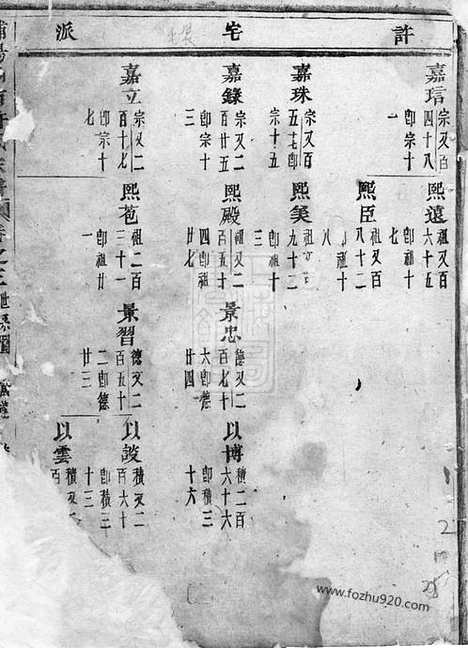 許 宅 派
嘉琂 宗又百四十八即宗十一
熙遠 祖又百六十五即祖十七
熙臣 祖又百八十二即祖十八
嘉珠 宗又百五十七即宗十
熙美 祖又百九十二即祖十三
嘉錄 宗又二百廿五即宗十三
熙殿 祖又二百五十四即祖廿七
景忠 德又二百七十六即德廿四
以博 積二百六十六即積三十六
嘉立 宗又二百十七即宗十七
熙苞 祖二百三十一即祖廿一
景習 德又二百五十二即德廿三
以鼓 積又二百六十即積三十三
以雲 積又二百
卷之三世系圖
www.fozhu920.com